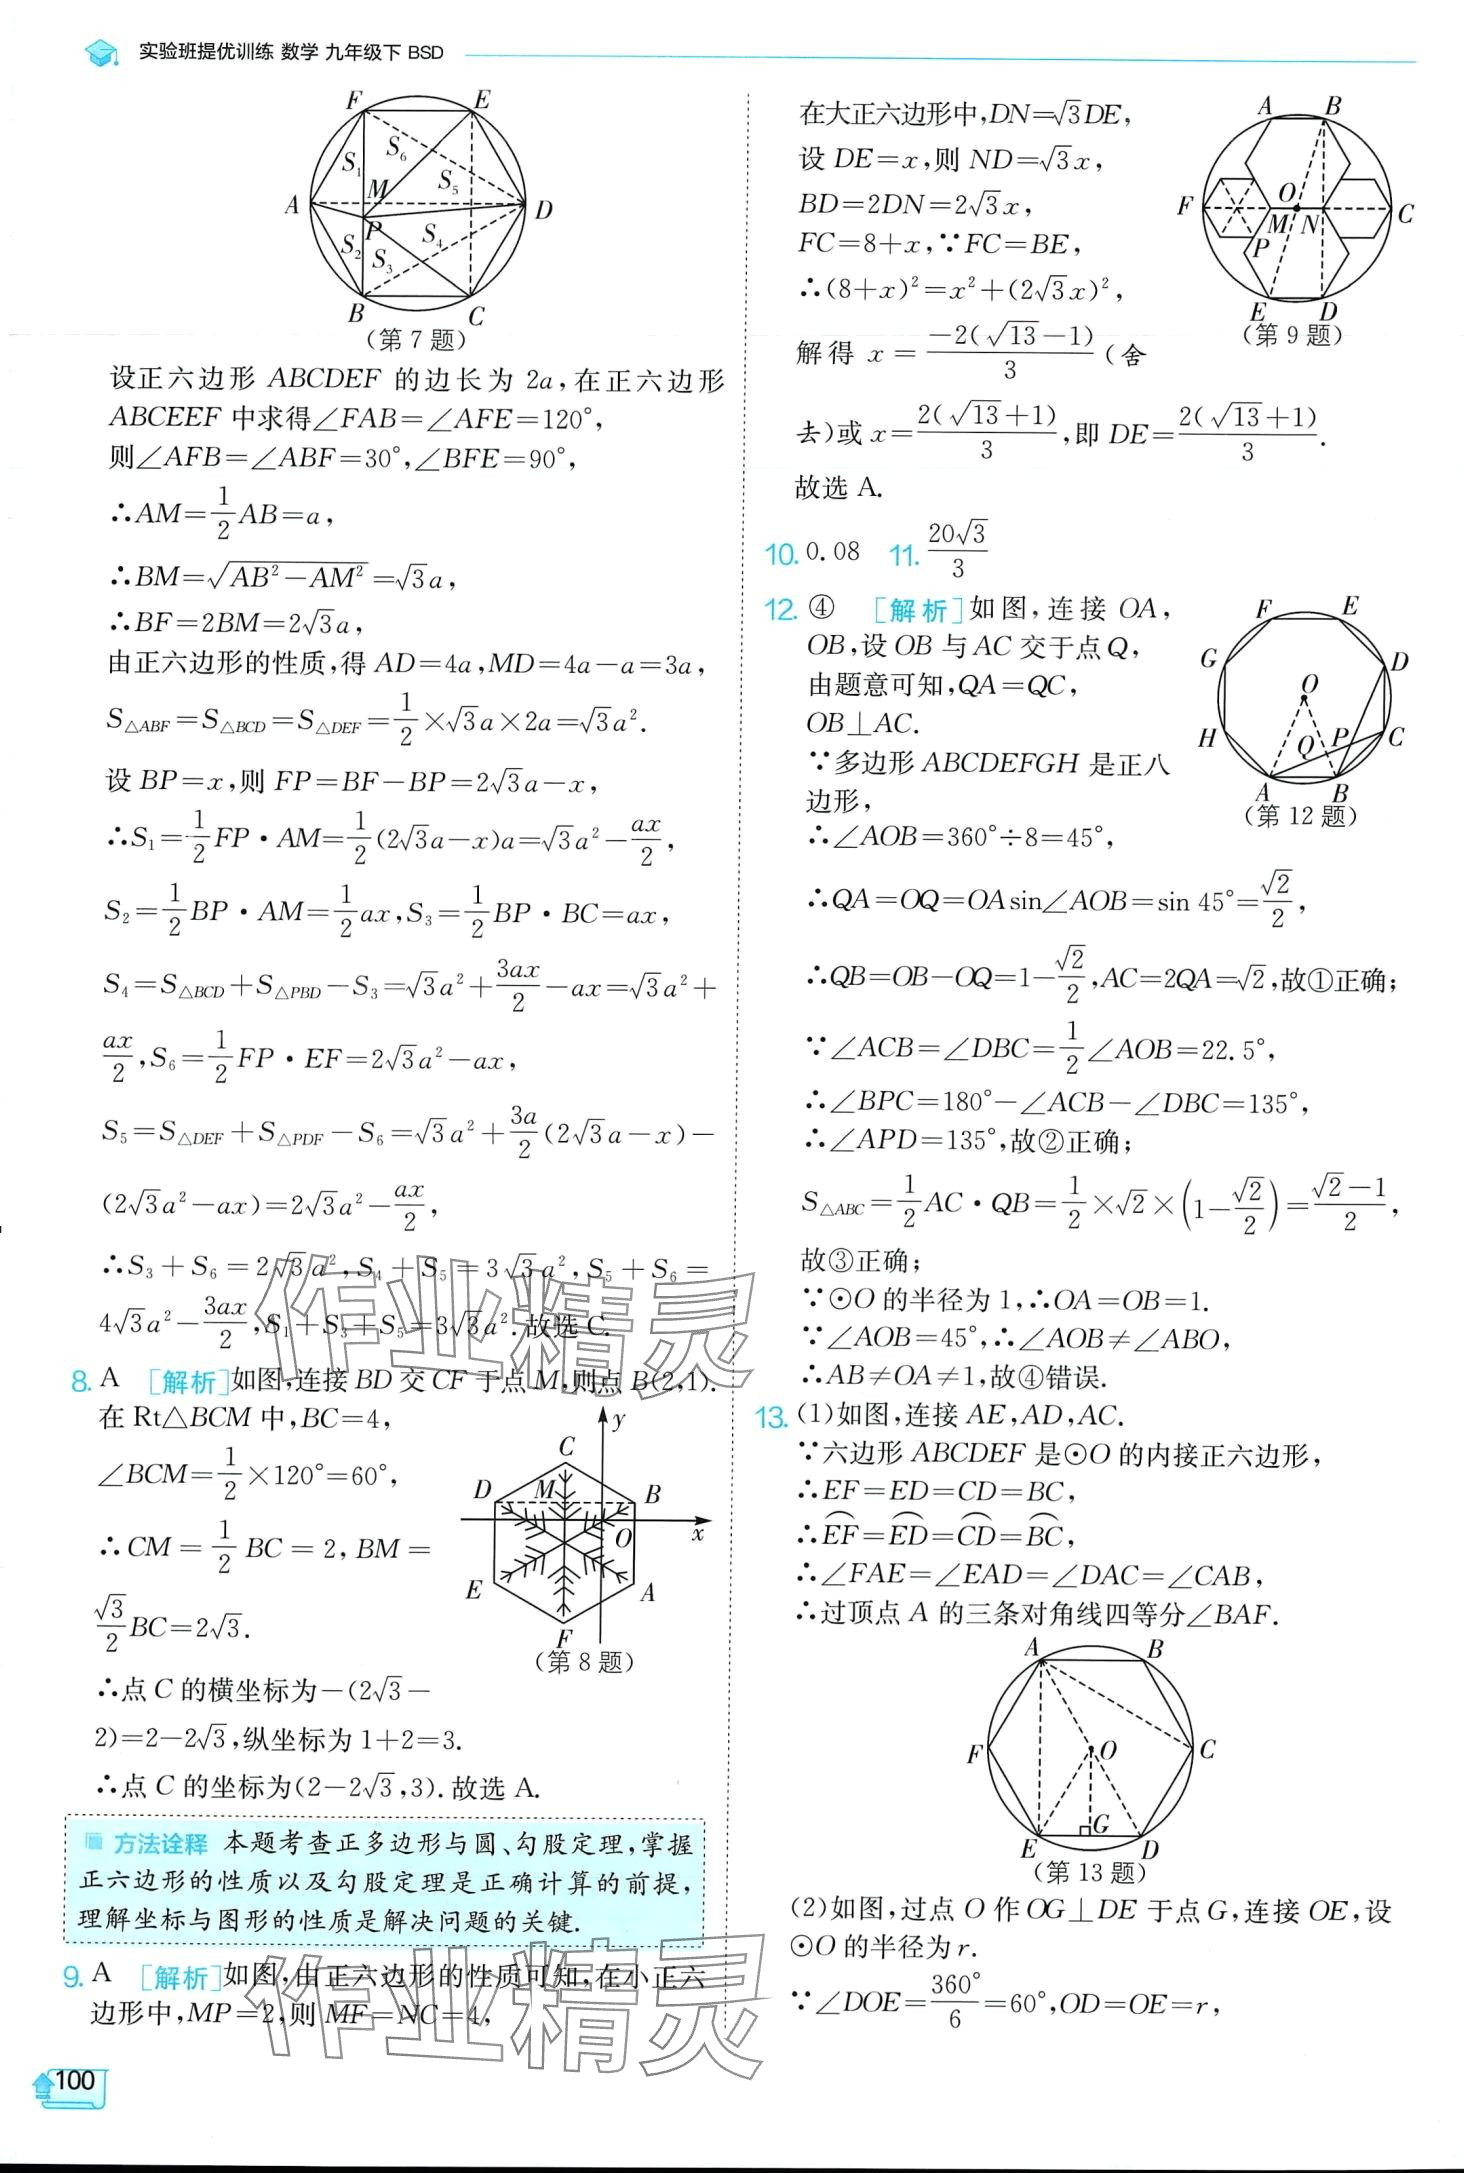 实验班提优训练 数学 九年级下 BSD
F E
S₁ S₆
M S₅
A D
P
S₂ S₃ S₄
B C
(第 7 题)
设正六边形 ABCDEF 的边长为 2a,在正六边形
ABCEEF 中求得∠FAB=∠AFE=120°,
则∠AFB=∠ABF=30°,∠BFE=90°,
∴AM=1/2AB=a,
∴BM=√(AB²-AM²)=√3a,
∴BF=2BM=2√3a,
由正六边形的性质,得 AD=4a,MD=4a-a=3a,
S△ABF=S△BCD=S△DEF=1/2×√3a×2a=√3a².
设 BP=x,则 FP=BF-BP=2√3a-x,
∴S₁=1/2FP·AM=1/2(2√3a-x)a=√3a²-ax/2,
S₂=1/2BP·AM=1/2ax,S₃=1/2BP·BC=ax,
S₄=S△BCD+S△PBD-S₃=√3a²+3ax/2-ax=√3a²+
ax/2,S₆=1/2FP·EF=2√3a²-ax,
S₅=S△DEF+S△PDF-S₆=√3a²+3a/2(2√3a-x)-
(2√3a²-ax)=2√3a²-ax/2,
∴S₃+S₆=2√3a²,S₄+S₅=3√3a²,S₅+S₆=
4√3a²-3ax/2,S₁+S₃+S₅=3√3a².故选 C.
8. A [解析]如图,连接 BD 交 CF 于点 M,则点 B(2,1).
在 Rt△BCM 中,BC=4,
∠BCM=1/2×120°=60°,
∴CM=1/2BC=2,BM=
√3/2BC=2√3.
y
C
D M B
O x
E A
F
(第 8 题)
∴点 C 的横坐标为-(2√3-
2)=2-2√3,纵坐标为 1+2=3.
∴点 C 的坐标为(2-2√3,3).故选 A.
方法诠释 本题考查正多边形与圆、勾股定理,掌握
正六边形的性质以及勾股定理是正确计算的前提,
理解坐标与图形的性质是解决问题的关键.
9. A [解析]如图,由正六边形的性质可知,在小正六
边形中,MP=2,则 MF=NC=4,
作业精灵
作业精灵
100
在大正六边形中,DN=√3DE,
设 DE=x,则 ND=√3x,
BD=2DN=2√3x,
FC=8+x,∵FC=BE,
∴(8+x)²=x²+(2√3x)²,
A B
F O C
M N
P
E D
(第 9 题)
解得 x=-2(√13-1)/3(舍
去)或 x=2(√13+1)/3,即 DE=2(√13+1)/3.
故选 A.
10. 0.08 11. 20√3/3
12. ④ [解析]如图,连接 OA,
OB,设 OB 与 AC 交于点 Q,
由题意可知,QA=QC,
OB⊥AC.
∵多边形 ABCDEFGH 是正八
边形,
F E
G D
O
H Q P C
A B
(第 12 题)
∴∠AOB=360°÷8=45°,
∴QA=OQ=OAsin∠AOB=sin 45°=√2/2,
∴QB=OB-OQ=1-√2/2,AC=2QA=√2,故①正确;
∵∠ACB=∠DBC=1/2∠AOB=22.5°,
∴∠BPC=180°-∠ACB-∠DBC=135°,
∴∠APD=135°,故②正确;
S△ABC=1/2AC·QB=1/2×√2×(1-√2/2)=(√2-1)/2,
故③正确;
∵⊙O 的半径为 1,∴OA=OB=1.
∵∠AOB=45°,∴∠AOB≠∠ABO,
∴AB≠OA≠1,故④错误.
13. (1)如图,连接 AE,AD,AC.
∵六边形 ABCDEF 是⊙O 的内接正六边形,
∴EF=ED=CD=BC,
∴⌒EF=⌒ED=⌒CD=⌒BC,
∴∠FAE=∠EAD=∠DAC=∠CAB,
∴过顶点 A 的三条对角线四等分∠BAF.
A B
F O C
G
E D
(第 13 题)
(2)如图,过点 O 作 OG⊥DE 于点 G,连接 OE,设
⊙O 的半径为 r.
∵∠DOE=360°/6=60°,OD=OE=r,